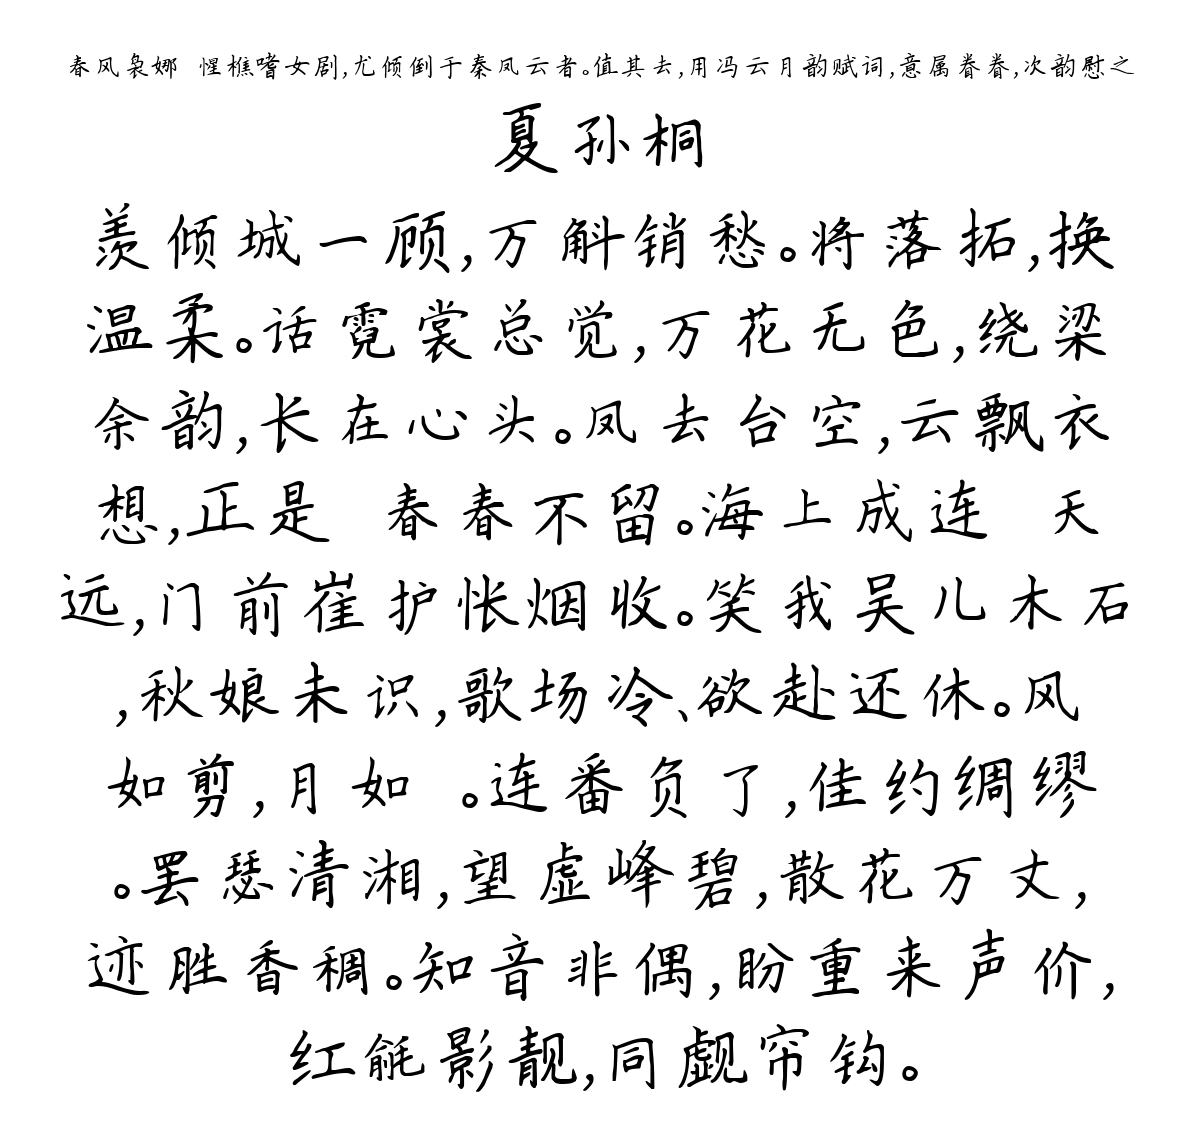 春风袅娜 惺樵嗜女剧,尤倾倒于秦凤云者。值其去,用冯云月韵赋词,意属眷眷,次韵慰之
夏孙桐
羡倾城一顾,万斛销愁。将落拓,换
温柔。话霓裳总觉,万花无色,绕梁
余韵,长在心头。凤去台空,云飘衣
想,正是 春春不留。海上成连 天
远,门前崔护怅烟收。笑我吴儿木石
,秋娘未识,歌场冷、欲赴还休。风
如剪,月如 。连番负了,佳约绸缪
。罢瑟清湘,望虚峰碧,散花万丈,
迹胜香稠。知音非偶,盼重来声价,
红毹影靓,同觑帘钩。